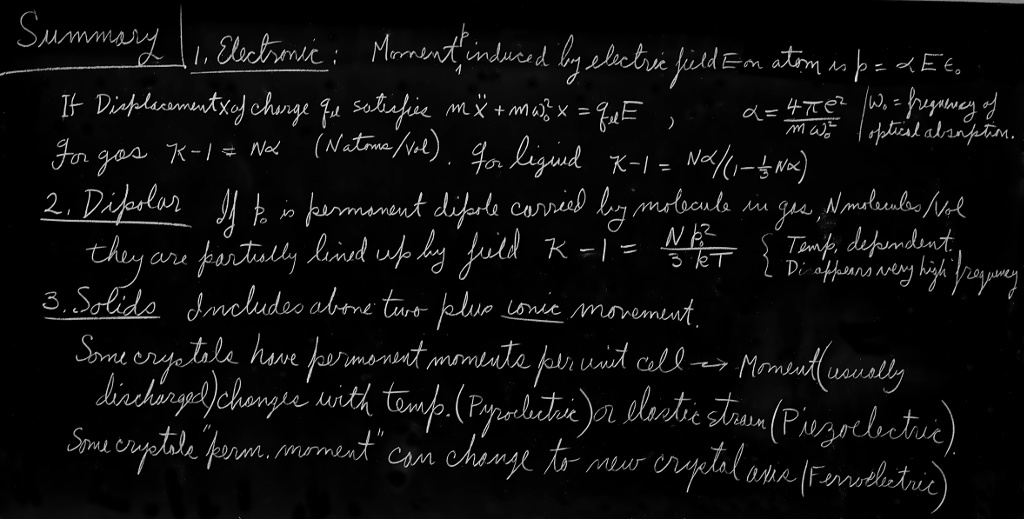 Summary
1. Electronic: Moment p induced by electric field E on atom is p = αEε₀
If Displacement x of charge qₑₗ satisfies mẍ + mω₀²x = qₑₗE , α = 4πe²/mω₀² | ω₀ = frequency of optical absorption.
For gas κ-1 = Nα (N atoms/vol). For liquid κ-1 = Nα/(1-⅓Nα)
2. Dipolar If p₀ is permanent dipole carried by molecule in gas, N molecules/Vol
they are partially lined up by field κ-1 = Np₀²/3kT { Temp. dependent. Disappears very high frequency
3. Solids Includes above two plus ionic movement.
Some crystals have permanent moments per unit cell → Moment (usually
discharged) changes with temp. (Pyroelectric) or elastic strain (Piezoelectric)
Some crystals "perm. moment" can change to new crystal axis (Ferroelectric)